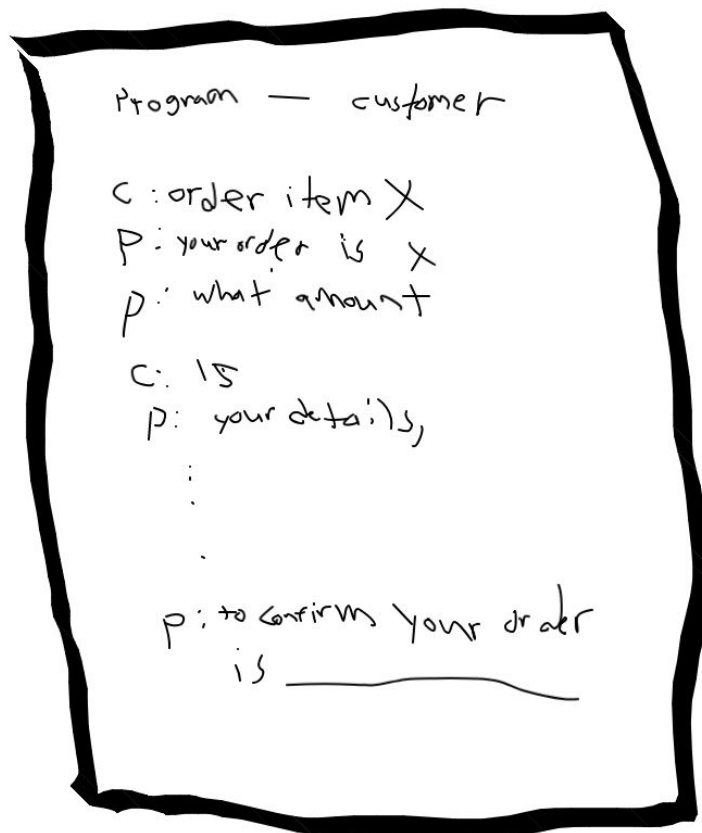 Program — customer
C: order item X
P: your order is x
P: what amount
C: 15
P: your details,
:
.
.
P: to confirm your order
is ________